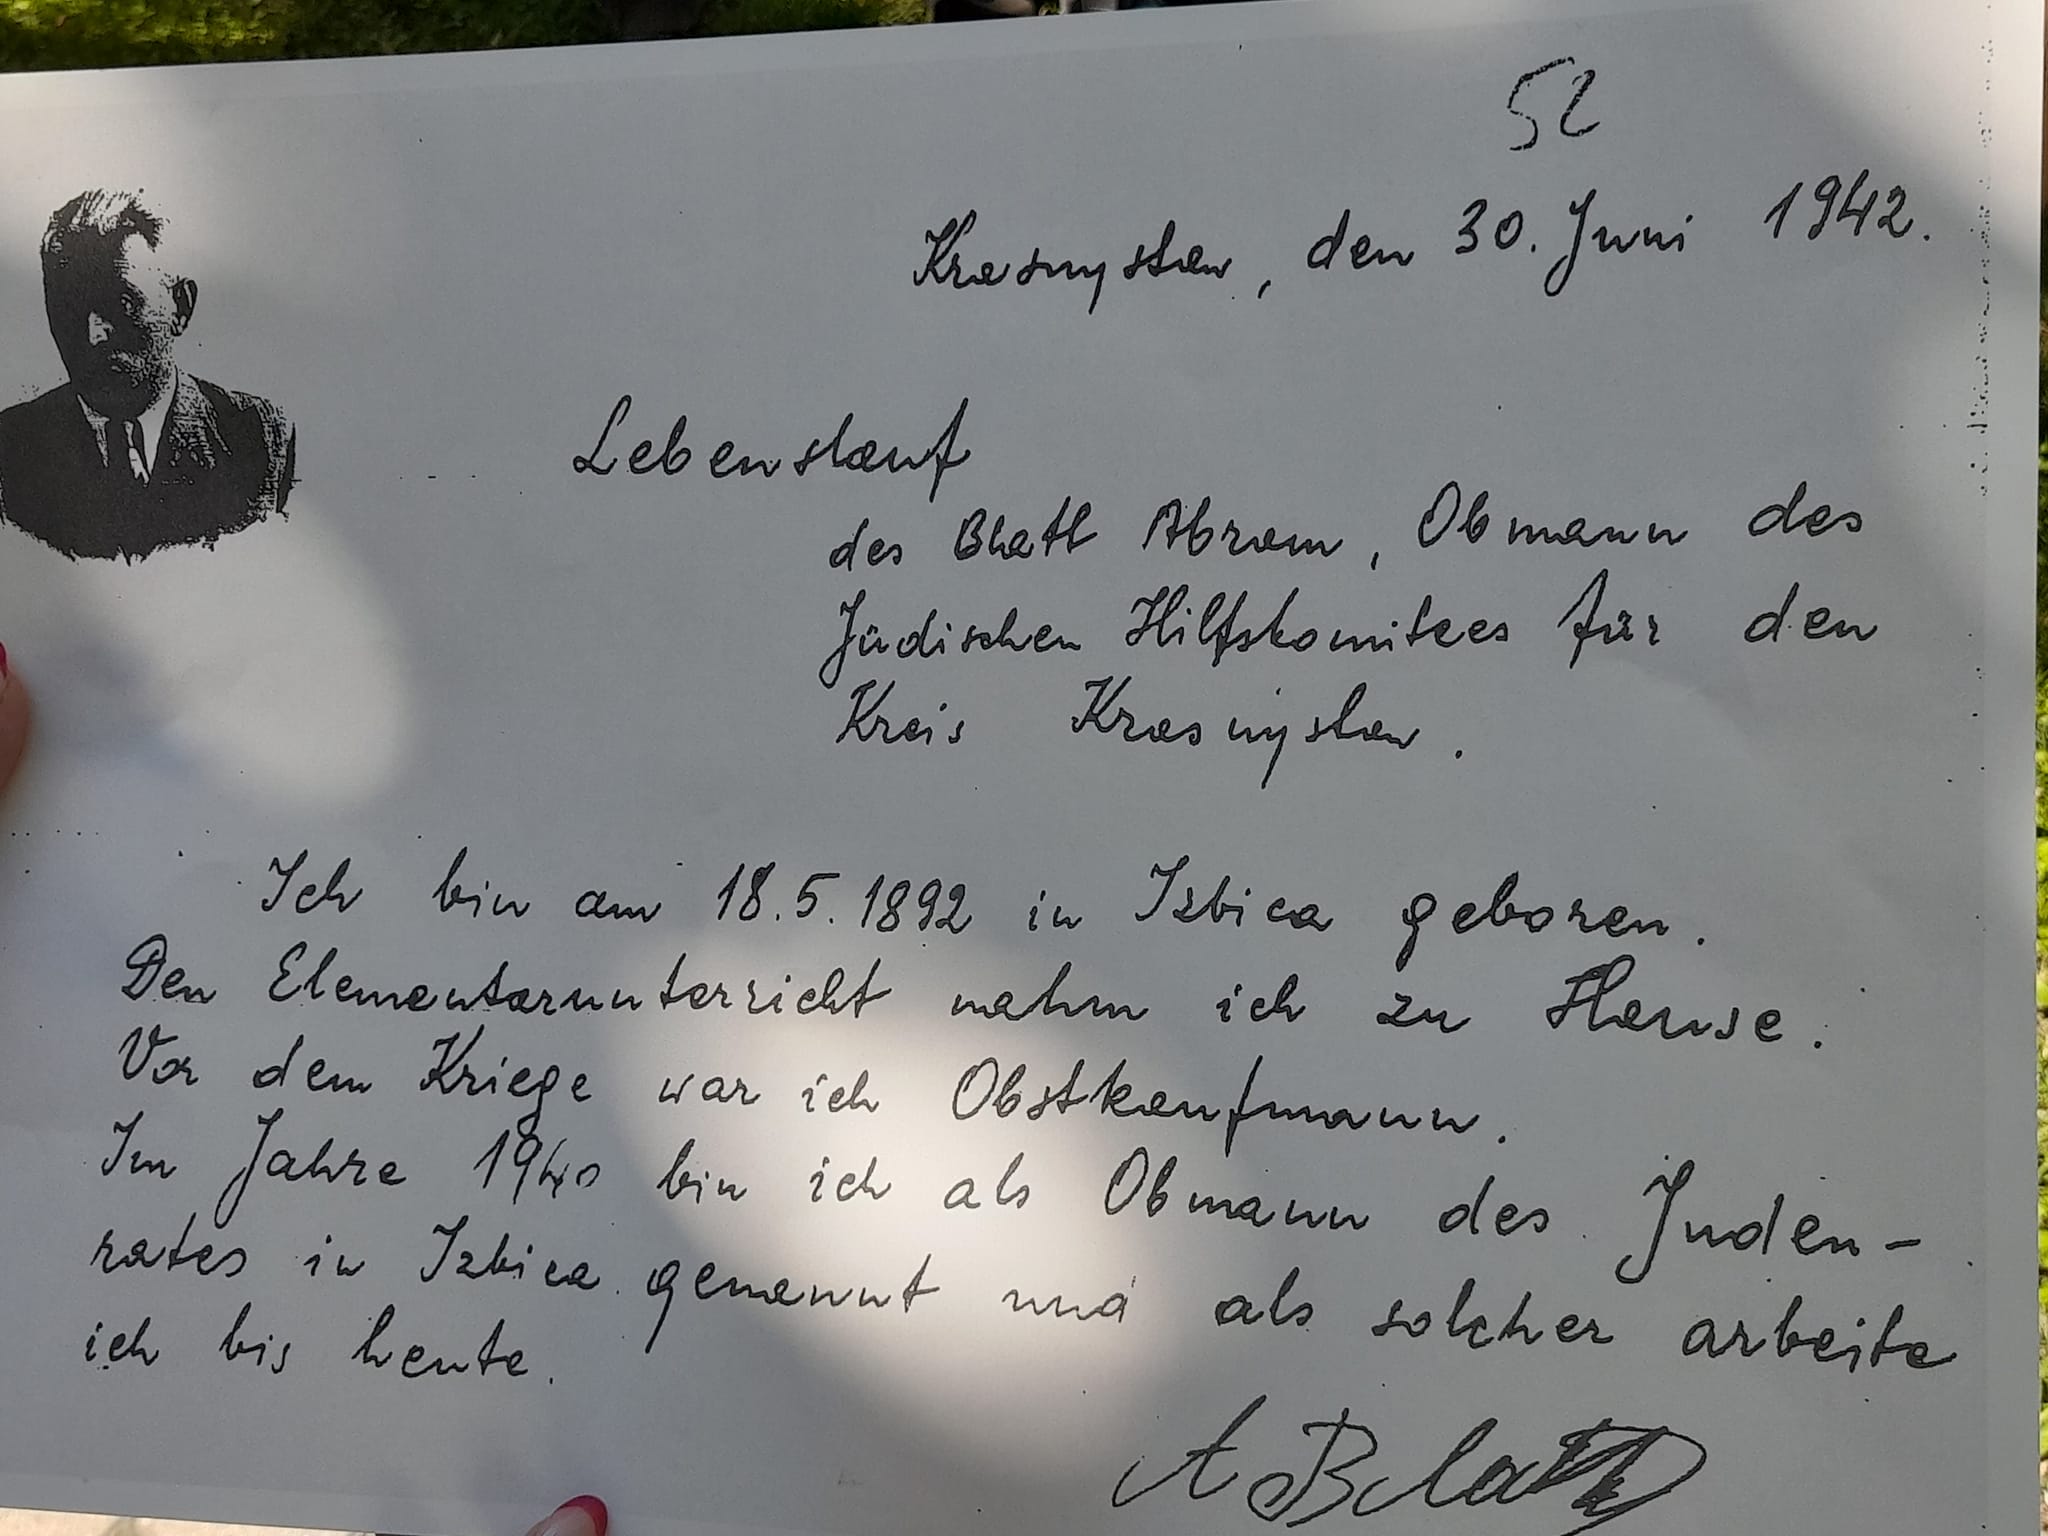 52
Krasnystaw, den 30. Juni 1942.
Lebenslauf
des Blatt Abram, Obmann des
Jüdischen Hilfskomitees für den
Kreis Krasnystaw.
Ich bin am 18.5.1892 in Izbica geboren.
Den Elementarunterricht nahm ich zu Hause.
Vor dem Kriege war ich Obstkaufmann.
Im Jahre 1940 bin ich als Obmann des Juden-
rates in Izbica genannt und als solcher arbeite
ich bis heute.
A Blatt